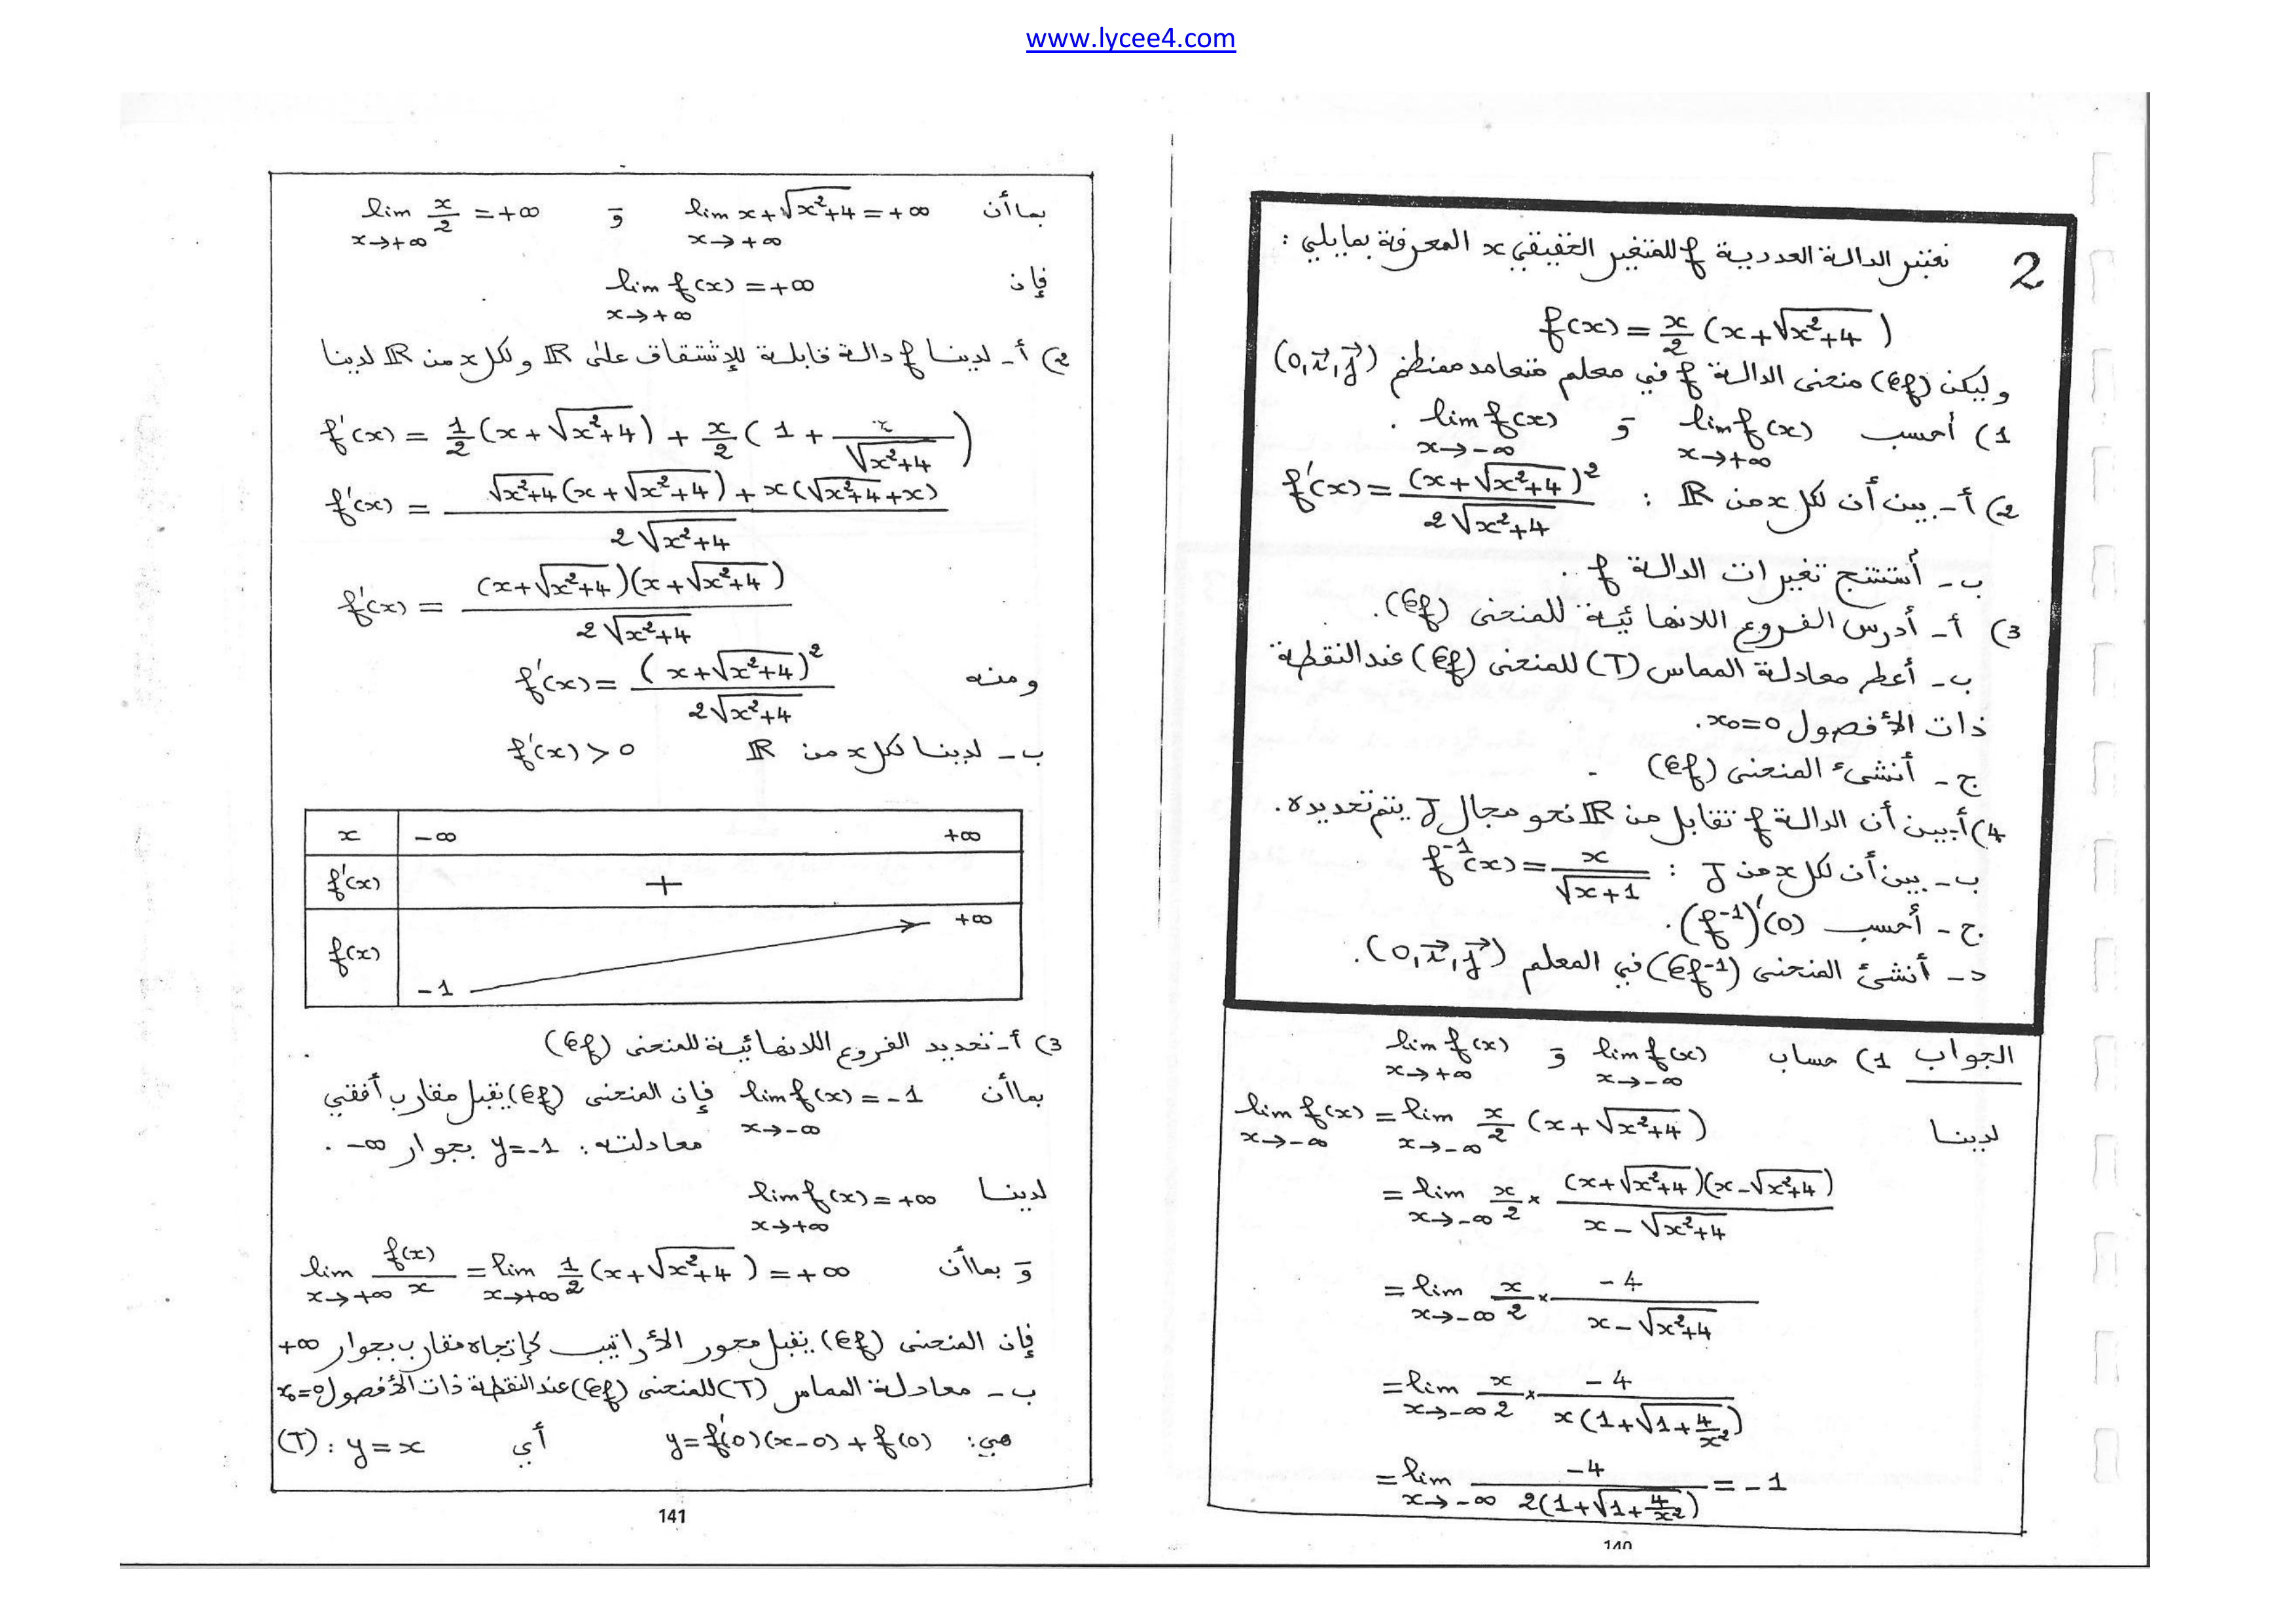 www.lycee4.com
2 نعتبر الدالة العددية f للمتغير الحقيقي x المعرفة بمايلي :
f(x) = x/2 (x+√(x²+4))
وليكن (𝒞f) منحنى الدالة f في معلم متعامد ممنظم (0,i⃗,j⃗)
1) أحسب lim f(x) x→+∞ وَ lim f(x) x→-∞ .
2) أ- بين أن لكل x من ℝ : f'(x) = (x+√(x²+4))² / 2√(x²+4)
ب- أستنتج تغيرات الدالة f .
3) أ- أدرس الفروع اللانهائية للمنحنى (𝒞f).
ب- أعط معادلة المماس (T) للمنحنى (𝒞f) عند النقطة
ذات الأفصول x₀=0.
ج- أنشئ المنحنى (𝒞f)
4) أ- بين أن الدالة f تقابل من ℝ نحو مجال J يتم تحديده.
ب- بين أن لكل x من J : f⁻¹(x) = x/√(x+1)
ج- أحسب (f⁻¹)'(0).
د- أنشئ المنحنى (𝒞f⁻¹) في المعلم (0,i⃗,j⃗).
الجواب 1) حساب lim f(x) x→-∞ وَ lim f(x) x→+∞
لدينا lim f(x) x→-∞ = lim x→-∞ x/2 (x+√(x²+4))
= lim x→-∞ x/2 × (x+√(x²+4))(x-√(x²+4)) / x-√(x²+4)
= lim x→-∞ x/2 × -4 / x-√(x²+4)
= lim x→-∞ x/2 × -4 / x(1+√(1+4/x²))
= lim x→-∞ -4 / 2(1+√(1+4/x²)) = -1
140
بما أن lim x+√(x²+4) = +∞ x→+∞ وَ lim x/2 = +∞ x→+∞
فإن lim f(x) = +∞ x→+∞
2) أ- لدينا f دالة قابلة للإشتقاق على ℝ ولكل x من ℝ لدينا
f'(x) = 1/2 (x+√(x²+4)) + x/2 (1 + x/√(x²+4))
f'(x) = √(x²+4)(x+√(x²+4)) + x(√(x²+4)+x) / 2√(x²+4)
f'(x) = (x+√(x²+4))(x+√(x²+4)) / 2√(x²+4)
ومنه f'(x) = (x+√(x²+4))² / 2√(x²+4)
ب- لدينا لكل x من ℝ f'(x) > 0
x -∞ +∞
f'(x) +
f(x) -1 +∞
3) أ- تحديد الفروع اللانهائية للمنحنى (𝒞f)
بما أن lim f(x) = -1 x→-∞ فإن المنحنى (𝒞f) يقبل مقارب أفقي
معادلته : y=-1 بجوار -∞ .
لدينا lim f(x) = +∞ x→+∞
وَ بما أن lim x→+∞ f(x)/x = lim x→+∞ 1/2 (x+√(x²+4)) = +∞
فإن المنحنى (𝒞f) يقبل محور الأراتيب كإتجاه مقارب بجوار +∞
ب- معادلة المماس (T) للمنحنى (𝒞f) عند النقطة ذات الأفصول x₀=0
هي: y=f'(0)(x-0)+f(0) أي (T) : y=x
141